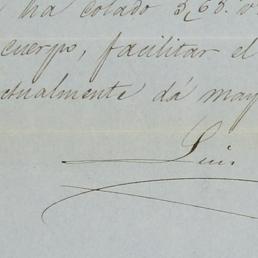 ha colado 3,63. v
cuerpo, facilitar el
ctualmente dá may
Luis